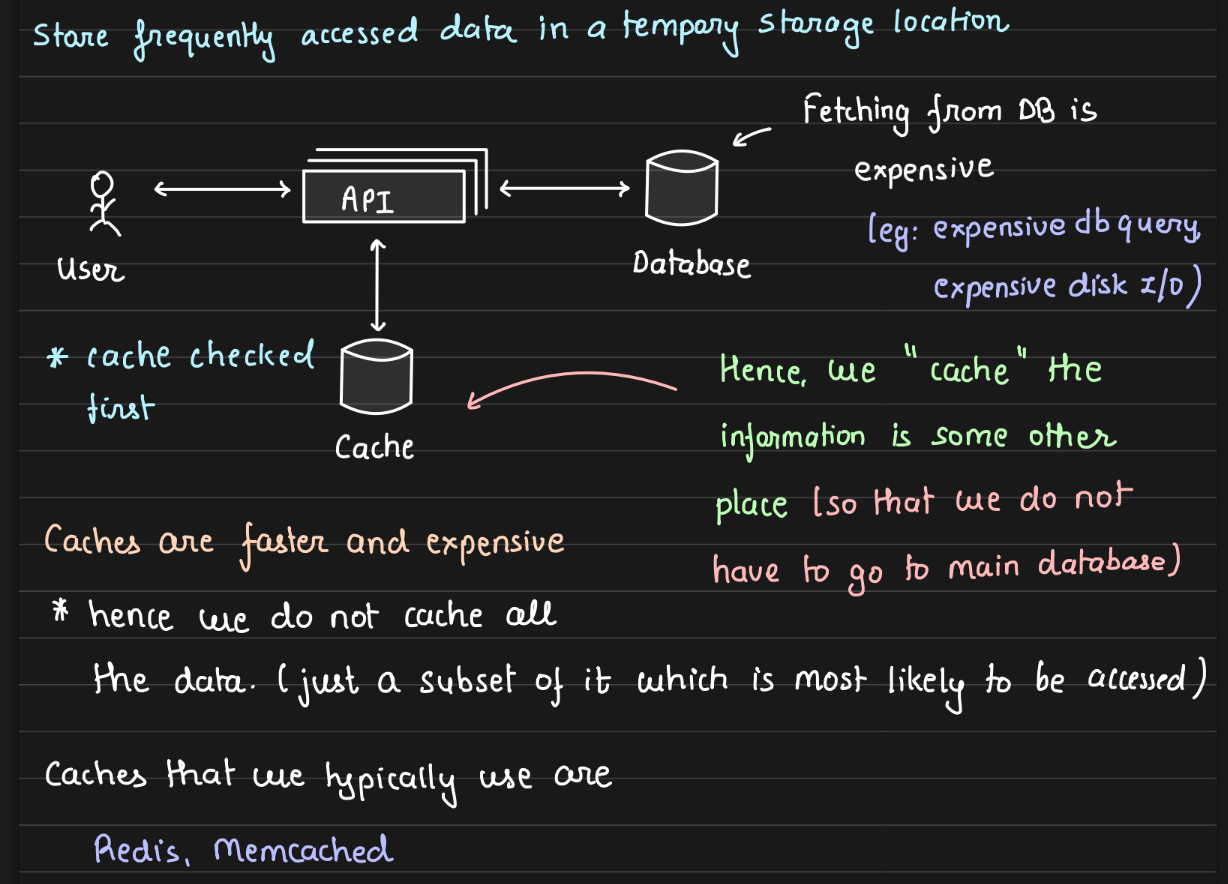 Store frequently accessed data in a tempary storage location
Fetching from DB is
expensive
(eg: expensive db query,
expensive disk I/O)
API
User
Database
* cache checked
first
Cache
Hence, we "cache" the
information is some other
place (so that we do not
have to go to main database)
Caches are faster and expensive
* hence we do not cache all
the data. (just a subset of it which is most likely to be accessed)
Caches that we typically use are
Redis, Memcached